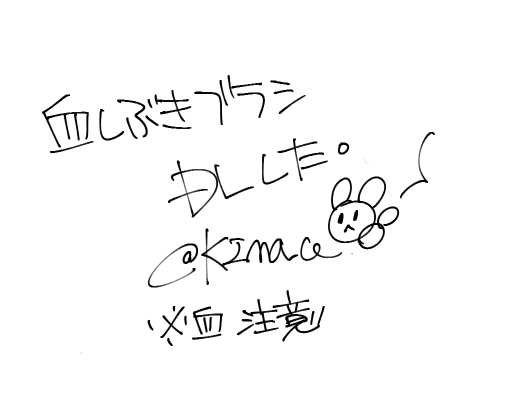 血しぶきブラシ
DLした。
@Kinace
※血注意